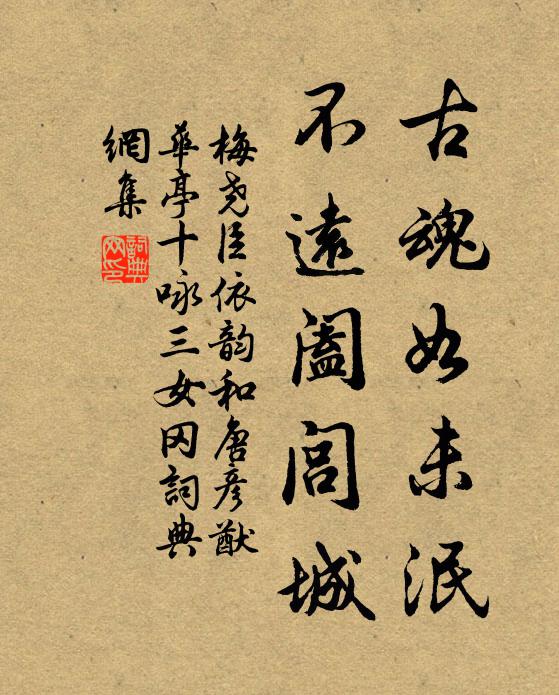 古魂如未泯
不遠闔閭城
梅堯臣依韵和唐彦猷
華亭十咏三女冈詞典
網集
詞典
网印